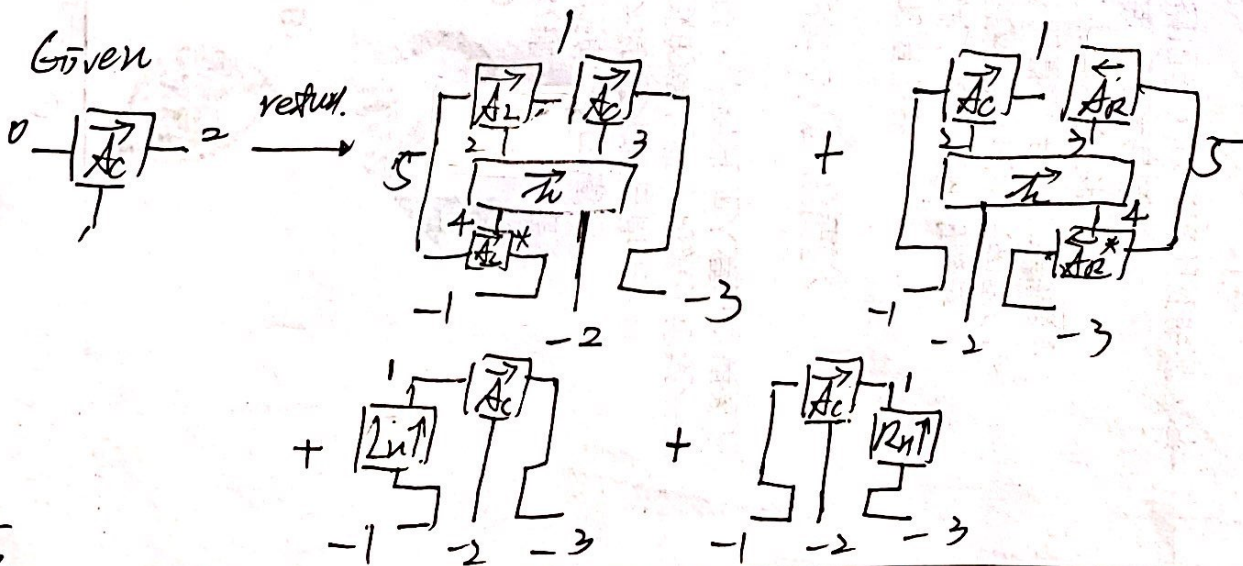 Given
0 A_C 2 return.
1
1
A_L A_C
2 3
5 h
4
A_L *
-1 -2 -3
+
1
A_C A_R
2 3
h 5
4
A_R *
-1 -2 -3
+ 1 A_C
Ln↑
-1 -2 -3
+ A_C 1
Rn↑
-1 -2 -3